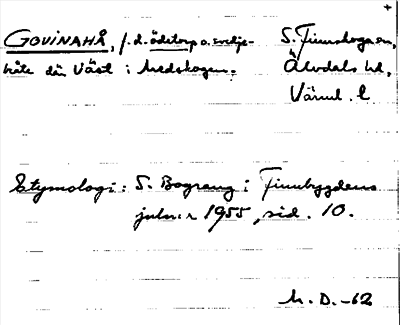 +
GOVINAHÅ, f.d. ödetorp o. svedje- S. Finnskoga sn,
bråte där Väst i Medskogen. Älvdals hd,
Värml. l.
Etymologi: S. Bograng i Finnbygdens
julnr 1955, sid. 10.
M.D.-62